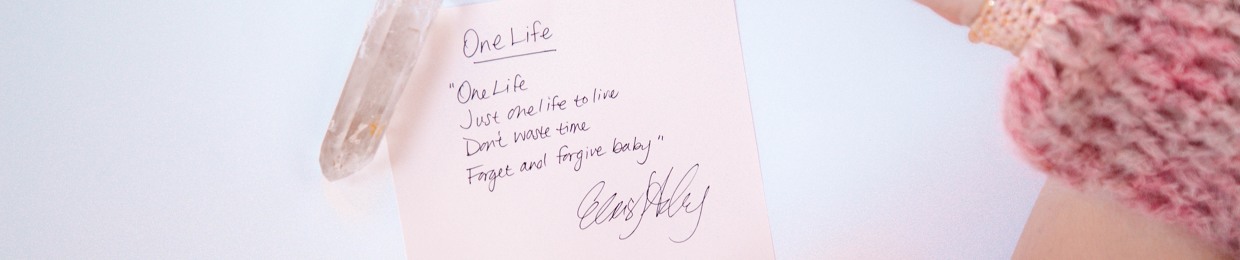 One Life
"One Life
Just one life to live
Don't waste time
Forget and forgive baby"